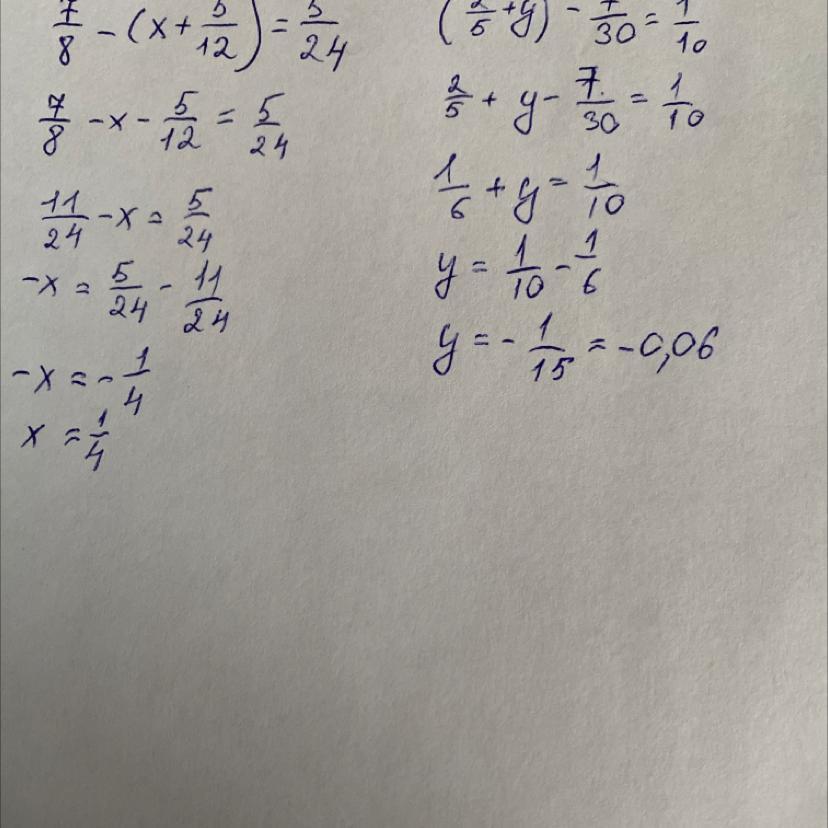 7/8 - (x + 5/12) = 5/24
7/8 - x - 5/12 = 5/24
11/24 - x = 5/24
-x = 5/24 - 11/24
-x = - 1/4
x = 1/4
(2/5 + y) - 7/30 = 1/10
2/5 + y - 7/30 = 1/10
1/6 + y = 1/10
y = 1/10 - 1/6
y = - 1/15 = -0,06